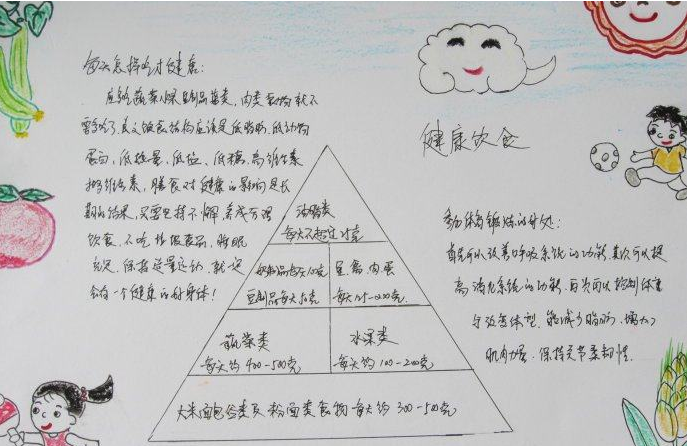 每天怎样吃才健康:
应给蔬菜水果豆制品菌类,肉类食物就不
需多吃了,真正饮食结构应该是低脂肪,低动物
蛋白,低热量,低盐、低糖、高维生素
膳食对健康的影响是长
期的结果,只要坚持不懈,养成合理
饮食,不吃垃圾食品,睡眠
充足,保持适量运动,就一定
会有一个健康的好身体!
健康饮食
油脂类
每天不超过25克
奶制品每天100克
豆制品每天50克
鱼禽、肉蛋
每天125-200克
蔬菜类
每天约400-500克
水果类
每天约100-200克
大米面包谷类及粉面类食物每天约300-500克
参加体育锻炼的好处:
首先可以改善呼吸系统的功能,其次可以提
高消化系统的功能,再次可以控制体重
与改善体型,能减少脂肪,增大
肌肉力量,保持关节柔韧性.